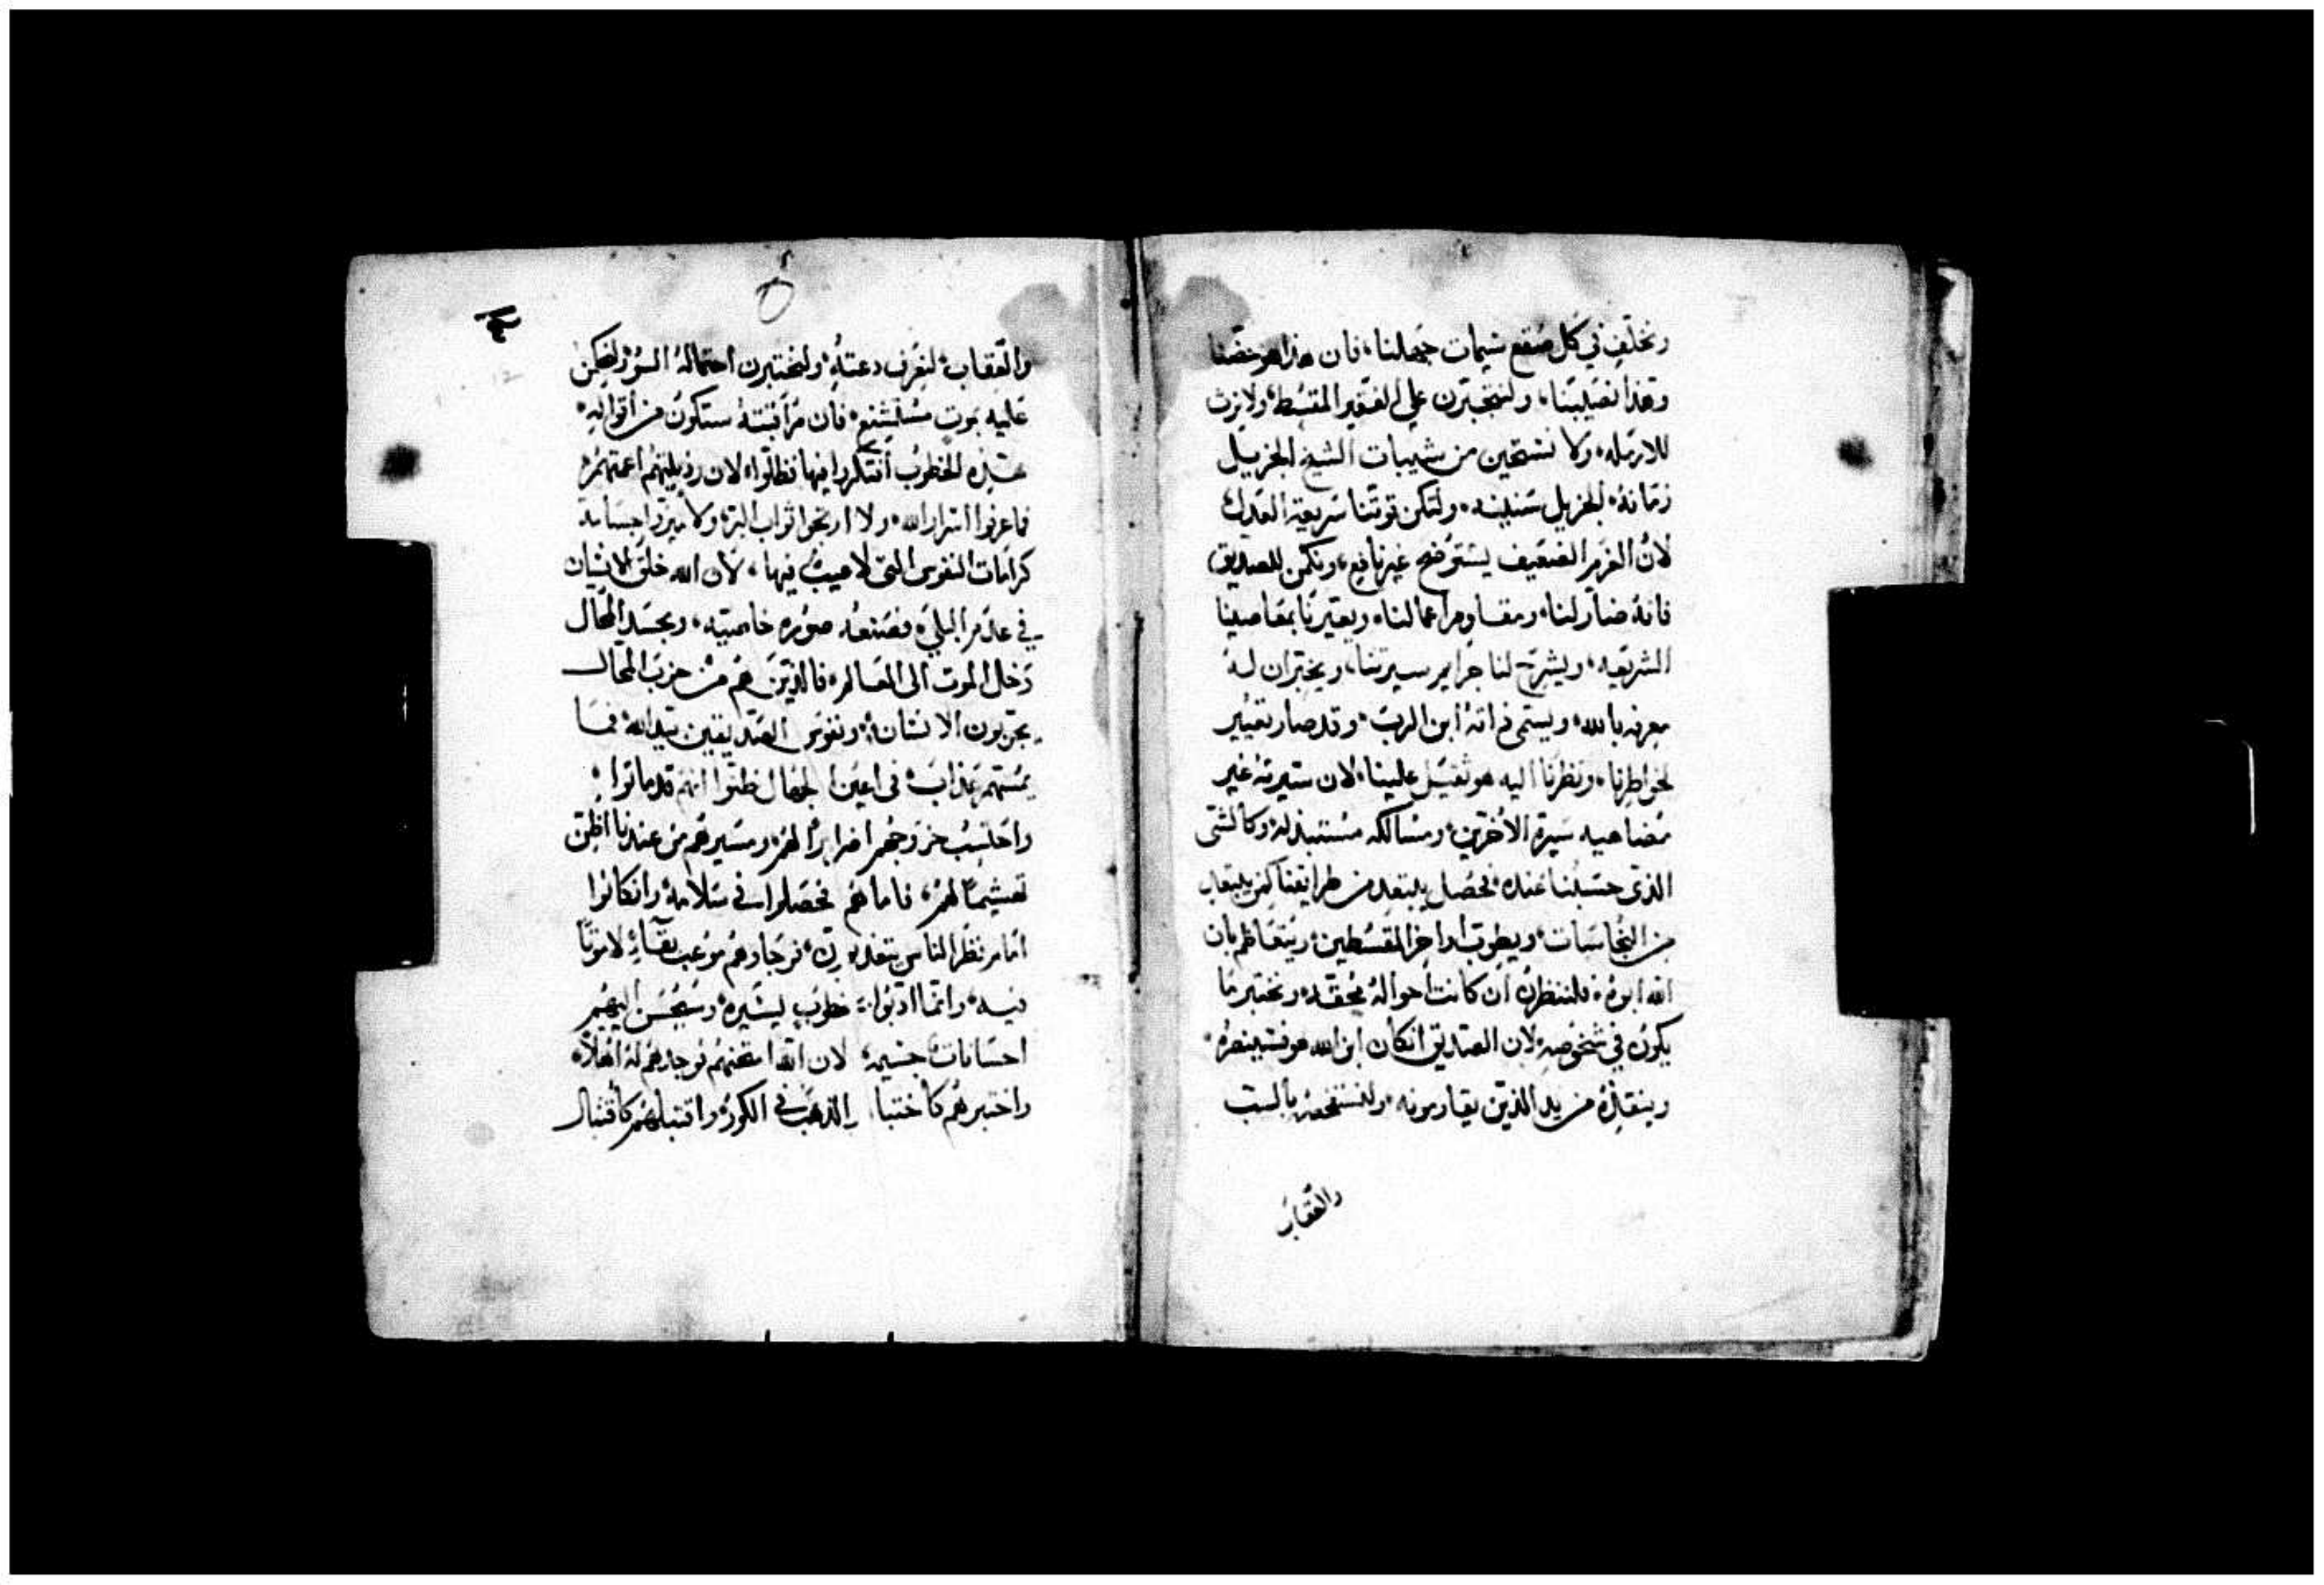 ونخلف في كل صقع شيمات جهلنا، فان هذا هو حضنا
وهذا نصيبنا، ولنتجبرن على الفقير المقسط، ولا نرث
للارمله، ولا نستحين من شيبات الشيخ الجزيل
زمانه، الجزيل سنينه، ولتكن قوتنا شريعة العدل
لان العزم الضعيف يستوضح غير نافع، ونكمن للصديق
فانه ضار لنا، ومقاوم اعمالنا، ويعيرنا بمعاصينا
الشريعيه، ويشرح لنا جراير سيرتنا، ويخبر ان له
معرفه بالله، ويسمى ذاته ابن الرب، وقد صار تعيير
لخواطرنا، ونظرنا اليه هو ثقيل علينا، لان سيرته غير
مضاهيه سيرة الاخرين، ومسالكه مستبذله، وكالشى
الذى حسبنا عنده، فحصل يبتعد من طرايقنا كمن يبتعد
من النجاسات، ويطوب اواخر المقسطين، ويتعاظم بان
الله ابوه، فلننظرن ان كانت احواله محقه، ونختبر ما
يكون في شخوصه، لان الصديق ان كان ابن الله هو فسينصره،
وينقذه من يد الذين يقاومونه، ولنستفحصه بالسب
والعقاب
والعقاب، لنعرف دعته، ولنختبرن احتماله السوء، ولنحكمن
عليه بموت مستشنع، فان مراقبته ستكون من اقواله،
هذه الخطوب افتكروا فيها فظلوا، لان رذيلتهم اعمتهم،
فما عرفوا اسرار الله، ولا ارتجوا ثواب البر، ولا ميزوا جسامة
كرامات النفوس التى لا عيب فيها، لان الله خلق الانسان
في عدم البلى، وصنعه صورة خاصيته، وبحسد المحال
دخل الموت الى العالم، فالذين هم من حزب المحال
يجربون الانسان، ونفوس الصديقين بيد الله، فما
يمسهم عذاب، في اعين الجهال ظنوا انهم قد ماتوا،
واحتسب خروجهم اضرارا لهم، ومسيرهم من عندنا اظن
تهشيما لهم، فاما هم فحصلوا في سلامه، وان كانوا
امام نظر الناس يتعذبون، فرجاوهم موعب بقاء لا موتا
فيه، وانما ادبوا خطوب يسيره، وسيحسن اليهم
احسانات جسيمه، لان الله امتحنهم فوجدهم له اهلا،
واختبرهم كاختبار الذهب في الكور، واقتبلهم كاقتبال